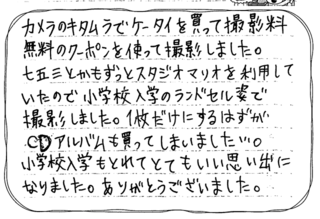 カメラのキタムラでケータイを買って撮影料
無料のクーポンを使って撮影しました。
七五三とかもずっとスタジオマリオを利用して
いたので小学校入学のランドセル姿で
撮影しました。1枚だけにするはずが
CDアルバムも買ってしまいました。
小学校入学もとれてとてもいい思い出に
なりました。ありがとうございました。